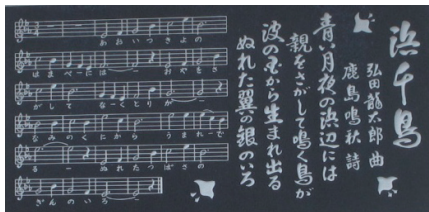 浜千鳥
弘田龍太郎 曲
鹿島鳴秋 詩
青い月夜の浜辺には
親をさがして鳴く鳥が
波の国から生まれ出る
ぬれた翼の銀のいろ
あおいつきよの
はまべにはー おやをさ
がして なくとりがー
なみのくにから うまれーで
るー ぬれたつばさの
ぎんのいろー